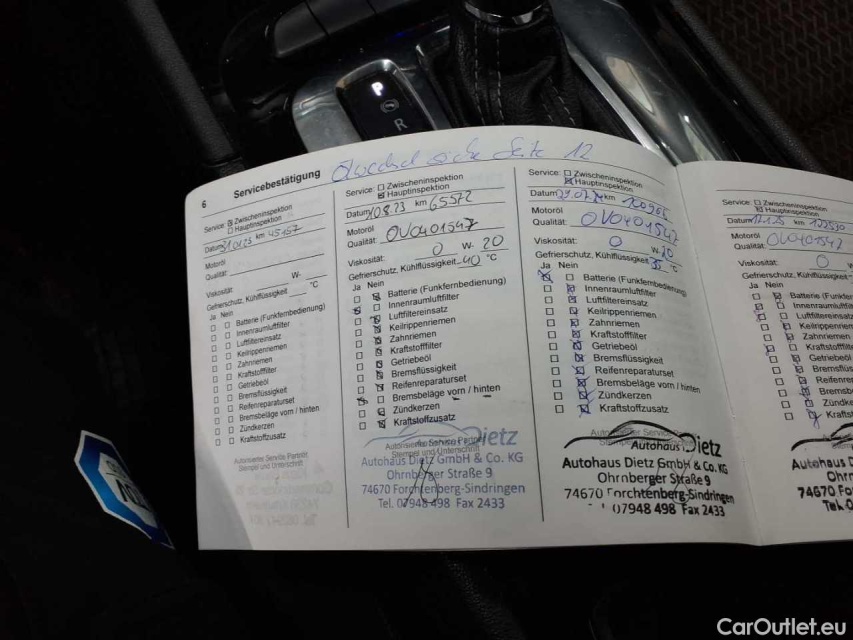 6 Servicebestätigung
Ölwechsel siehe Seite 12
Service: Zwischeninspektion
Hauptinspektion
Datum 31.01.23 km 45157
Motoröl
Qualität:
Viskosität: W-
Gefrierschutz, Kühlflüssigkeit °C
Ja Nein
Batterie (Funkfernbedienung)
Innenraumluftfilter
Luftfiltereinsatz
Keilrippenriemen
Zahnriemen
Kraftstofffilter
Getriebeöl
Bremsflüssigkeit
Reifenreparaturset
Bremsbeläge vorn / hinten
Zündkerzen
Kraftstoffzusatz
Autorisierter Service Partner
Stempel und Unterschrift
Service: Zwischeninspektion
Hauptinspektion
Datum 1/08.23 km 65572
Motoröl
Qualität: OV0401547
Viskosität: 0 W- 20
Gefrierschutz, Kühlflüssigkeit -40 °C
Ja Nein
Batterie (Funkfernbedienung)
Innenraumluftfilter
Luftfiltereinsatz
Keilrippenriemen
Zahnriemen
Kraftstofffilter
Getriebeöl
Bremsflüssigkeit
Reifenreparaturset
Bremsbeläge vorn / hinten
Zündkerzen
Kraftstoffzusatz
Autorisierter Service Partner
Stempel und Unterschrift
Dietz
Autohaus Dietz GmbH & Co. KG
Ohrnberger Straße 9
74670 Forchtenberg-Sindringen
Tel. 07948 498 Fax 2433
Service: Zwischeninspektion
Hauptinspektion
Datum km
Motoröl
Qualität: OV0401547
Viskosität: 0 W- 20
Gefrierschutz, Kühlflüssigkeit 35 °C
Ja Nein
Batterie (Funkfernbedienung)
Innenraumluftfilter
Luftfiltereinsatz
Keilrippenriemen
Zahnriemen
Kraftstofffilter
Getriebeöl
Bremsflüssigkeit
Reifenreparaturset
Bremsbeläge vorn / hinten
Zündkerzen
Kraftstoffzusatz
Autohaus Dietz
Autohaus Dietz GmbH & Co. KG
Ohrnberger Straße 9
74670 Forchtenberg-Sindringen
07948 498 Fax 2433
Service: Zwischeninspektion
Hauptinspektion
Datum km
Motoröl
Qualität: OV0401547
Viskosität: 0
Gefrierschutz, Kühlflüssigkeit
Ja Nein
Batterie (Funkfe
Innenraumluftfilter
Luftfiltereinsatz
Keilrippenriemen
Zahnriemen
Kraftstofffilt
Getriebeöl
Bremsflüs
Reifenrep
Bremsb
Zündke
Kraft
Autohaus D
Oh
74670 Fo
Tel. 0
R
CarOutlet.eu